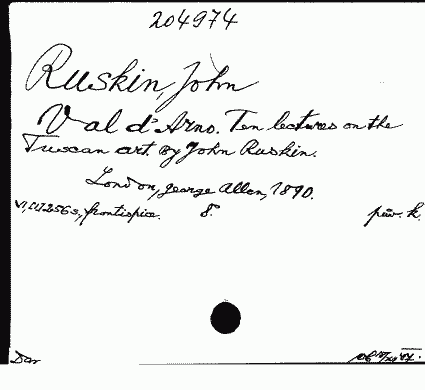 204974
Ruskin, John
Val d'Arno. Ten lectures on the
Tuscan art. By John Ruskin.
London, George Allen, 1890.
frontispice. 8°.
Dar